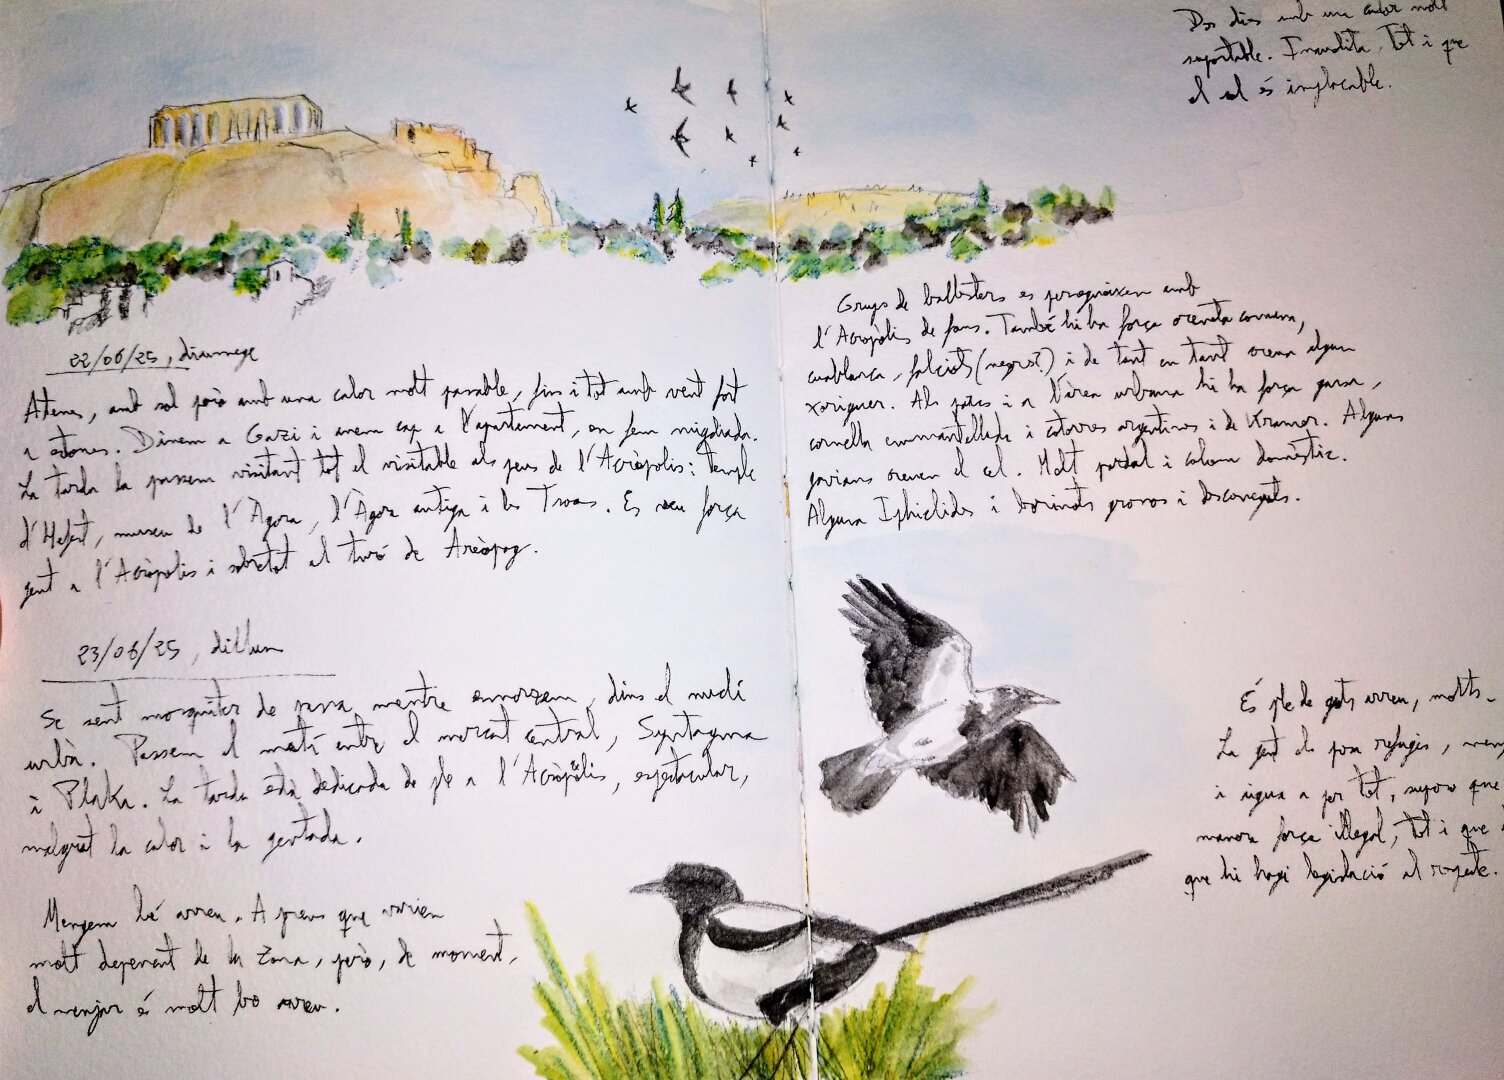 22/06/25, diumenge
Atenes, amb sol però amb una calor molt passable, fins i tot amb vent fort
a estones. Dinem a Gazi i anem cap a l'apartament, on fem migdiada.
La tarda la passem visitant tot el visitable als peus de l'Acròpolis: temple
d'Hefest, museu de l'Àgora, l'Àgora antiga i les Troas. Es veu força
gent a l'Acròpolis i sobretot al turó de Areòpag.
23/06/25, dilluns
Se sent mosquiter de passa mentre esmorzem, dins el nucli
urbà. Passem el matí entre el mercat central, Syntagma
i Plaka. La tarda està dedicada de ple a l'Acròpolis, espectacular,
malgrat la calor i la gentada.
Mengem bé arreu. A preus que varien
molt depenent de la zona, però, de moment,
el menjar és molt bo arreu.
Dos dies amb una calor molt
suportable. Inaudita, tot i que
el sol és implacable.
Grups de ballesters es persegueixen amb
l'Acròpolis de fons. També hi ha força oreneta comuna,
cuablanca, falciots (negres?) i de tant en tant creua algun
xoriguer. Als parcs i a l'àrea urbana hi ha força garsa,
cornella emmantellada i cotorres argentines i de Kramer. Alguns
gavians creuen el cel. Molt pardal i colom domèstic.
Alguna Iphiclides i borinots grossos i desconeguts.
És ple de gats arreu, molts.
La gent els posa refugis, menj
i aigua a per tot, suposo que
manera força il·legal, tot i que
que hi hagi legislació al respecte.